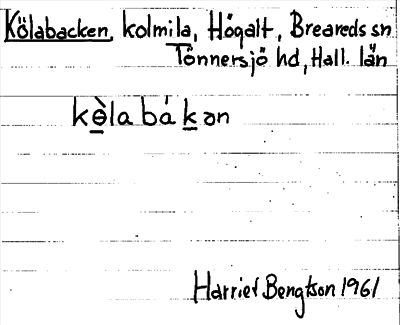 Kölabacken, kolmila, Högalt, Breareds sn
Tönnersjö hd, Hall. län
kө̀labákən
Harriet Bengtson 1961